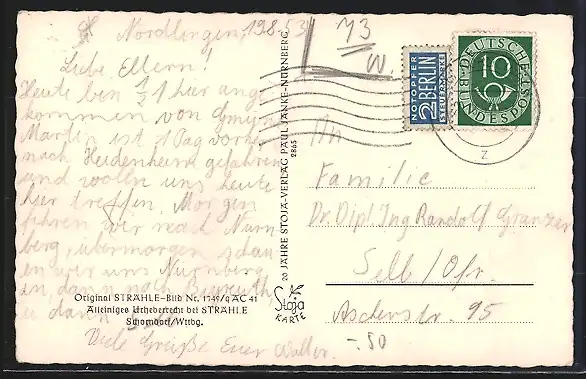 Nördlingen, 19.8.53
Liebe Eltern!
Heute bin 1/2 1 hier ange
kommen von Gmünd
Martin ist 1 Tag vorher
nach Heidenheim gefahren
und wolln uns heute
hier treffen. Morgen
fahren wir nach Nürn
berg, übermorgen
wir uns Nürnberg
an, dann nach Bayreuth,
u dann
Viele Grüße Euer Walter.
Original STRÄHLE-Bild Nr. 1749/g AC 41
Alleiniges Urheberrecht bei STRÄHLE
Schorndorf/Wttbg.
20 JAHRE STOJA-VERLAG PAUL JANKE-NÜRNBERG
2865
Stoja
KARTE
73
W.
NOTOPFER
2 BERLIN
STEUERMARKE
DEUTSCHE
BUNDESPOST
10
z
An
Familie
Dr. Dipl Ing Randolf Granzer
Selb/Ofr.
Ascherstr. 95
-.50